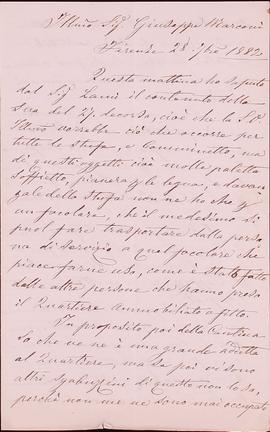 Illmo Sigr Giuseppe Marconi
Firenze 28 7bre 1882
Questa mattina ho saputo
dal Sigr Lami il contenuto della
Sua del 27. decorso, cioè che la S.V.
Illma vorrebbe ciò che occorre per
tutte le stufe, e camminetto, ma
di questi oggetti cioè molle paletta
soffietto, paniera p le legna, e davan
zale della stufa non ne ho che p
un focolare, che il medesimo si
puol fare trasportare dalla perso
na di servizio a quel focolare che
piace farne uso, come è stato fatto
dalle altre persone che hanno preso
il Quartiere Ammobiliato a fitto.
In proposito poi della Cantina
So che ve ne è una grande addetta
al Quartiere, ma se poi vi sono
altri sgabuzzini di questo non lo so,
perchè non me ne sono mai occupato